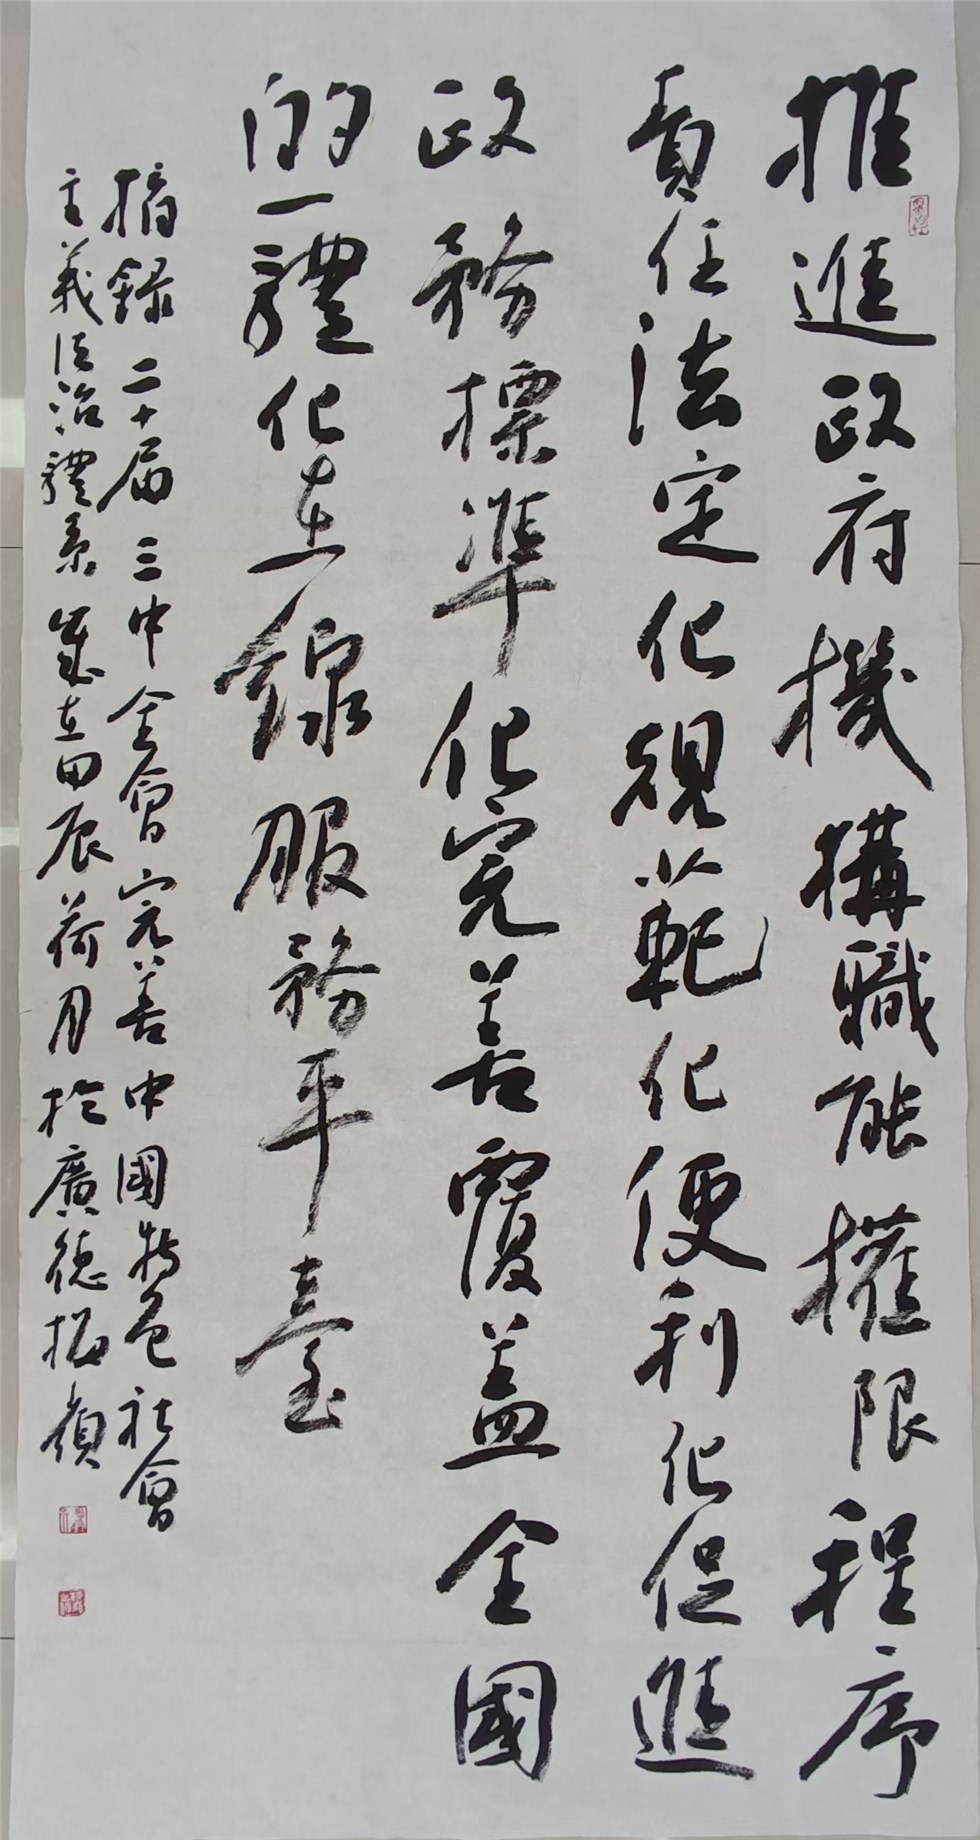 推進政府機構職能權限程序
責任法定化規範化便利化促進
政務標準化完善覆蓋全國
的一體化在線服務平臺
摘錄二十届三中全會完善中國特色社會
主義法治體系歲在甲辰荷月於廣德振嶺